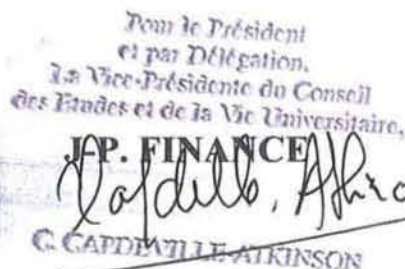 Pour le Président
et par Délégation,
La Vice-Présidente du Conseil
des Etudes et de la Vie Universitaire,
J-P. FINANCE
C. CAPDEVILLE-ATKINSON